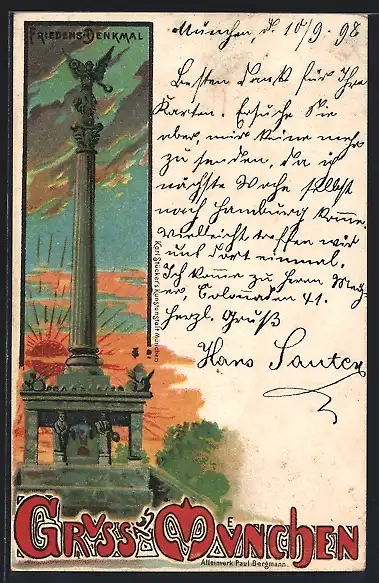 FRIEDENS-DENKMAL
München, d. 10/9. 98
Besten Dank für Ihre
Karten. Ersuche Sie
aber, mir keine mehr
zu senden, da ich
nächste Woche selbst
nach Hamburg komme.
Vielleicht treffen wir
uns dort einmal.
Ich komme zu Herrn
Colonaden 41.
herzl. Gruß
Hans Sauter
Karl Stücker's Kunstanstalt, München
GRUSS AUS MÜNCHEN
Alleinverk. Paul Bergmann.